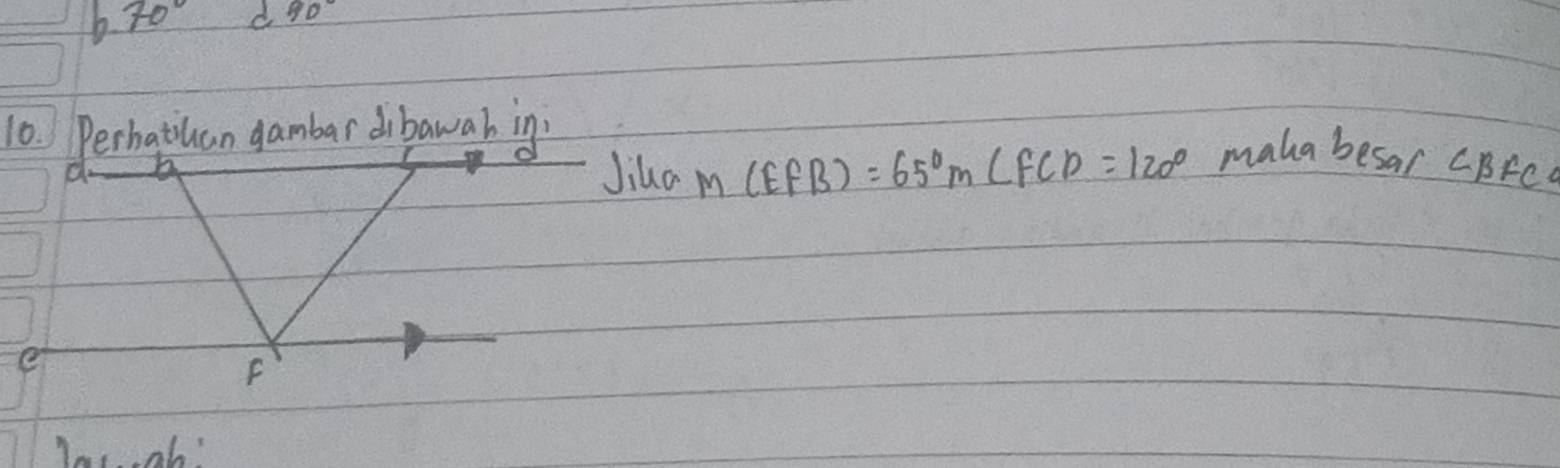 b. 70° d. 90°
10. Perhatikan gambar dibawah ini
a b c d
Jika m (EFB) = 65° m (FCD = 120° maka besar <BFC
e
F
Jawab: